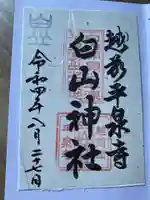 越前平泉寺
白山神社
令和四年八月二十七日